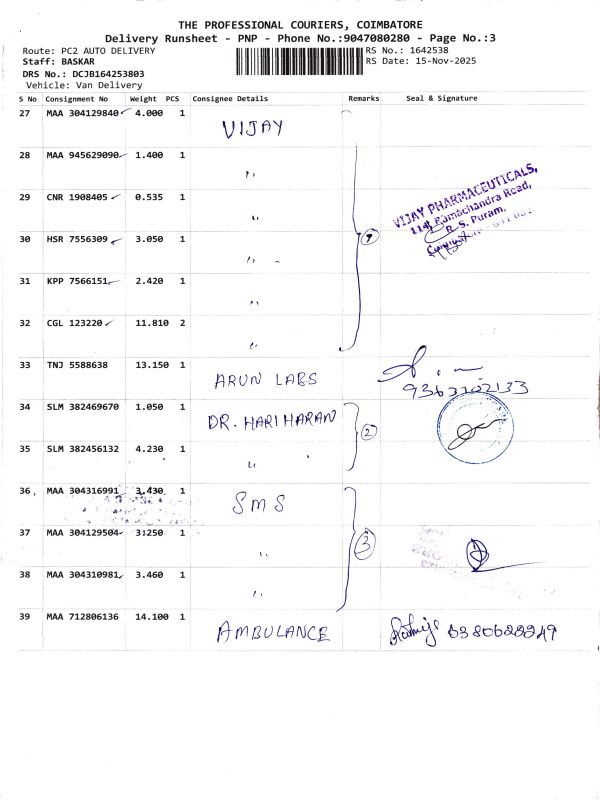 THE PROFESSIONAL COURIERS, COIMBATORE
Delivery Runsheet - PNP - Phone No.:9047080280 - Page No.:3
Route: PC2 AUTO DELIVERY RS No.: 1642538
Staff: BASKAR RS Date: 15-Nov-2025
DRS No.: DCJB164253803
Vehicle: Van Delivery
S No Consignment No Weight PCS Consignee Details Remarks Seal & Signature
27 MAA 304129840 4.000 1 VIJAY
28 MAA 945629090 1.400 1 〃
29 CNR 1908405 0.535 1 〃
VIJAY PHARMACEUTICALS,
Ramachandra Road,
R. S. Puram,
30 HSR 7556309 3.050 1 〃
31 KPP 7566151 2.420 1 〃
32 CGL 123220 11.810 2 〃
33 TNJ 5588638 13.150 1 ARUN LABS
34 SLM 382469670 1.050 1 DR. HARI HARAN
35 SLM 382456132 4.230 1 〃 2
36 MAA 304316991 3.430 1 SMS
37 MAA 304129504 3.250 1 〃 3
38 MAA 304310981 3.460 1 〃
39 MAA 712806136 14.100 1 AMBULANCE